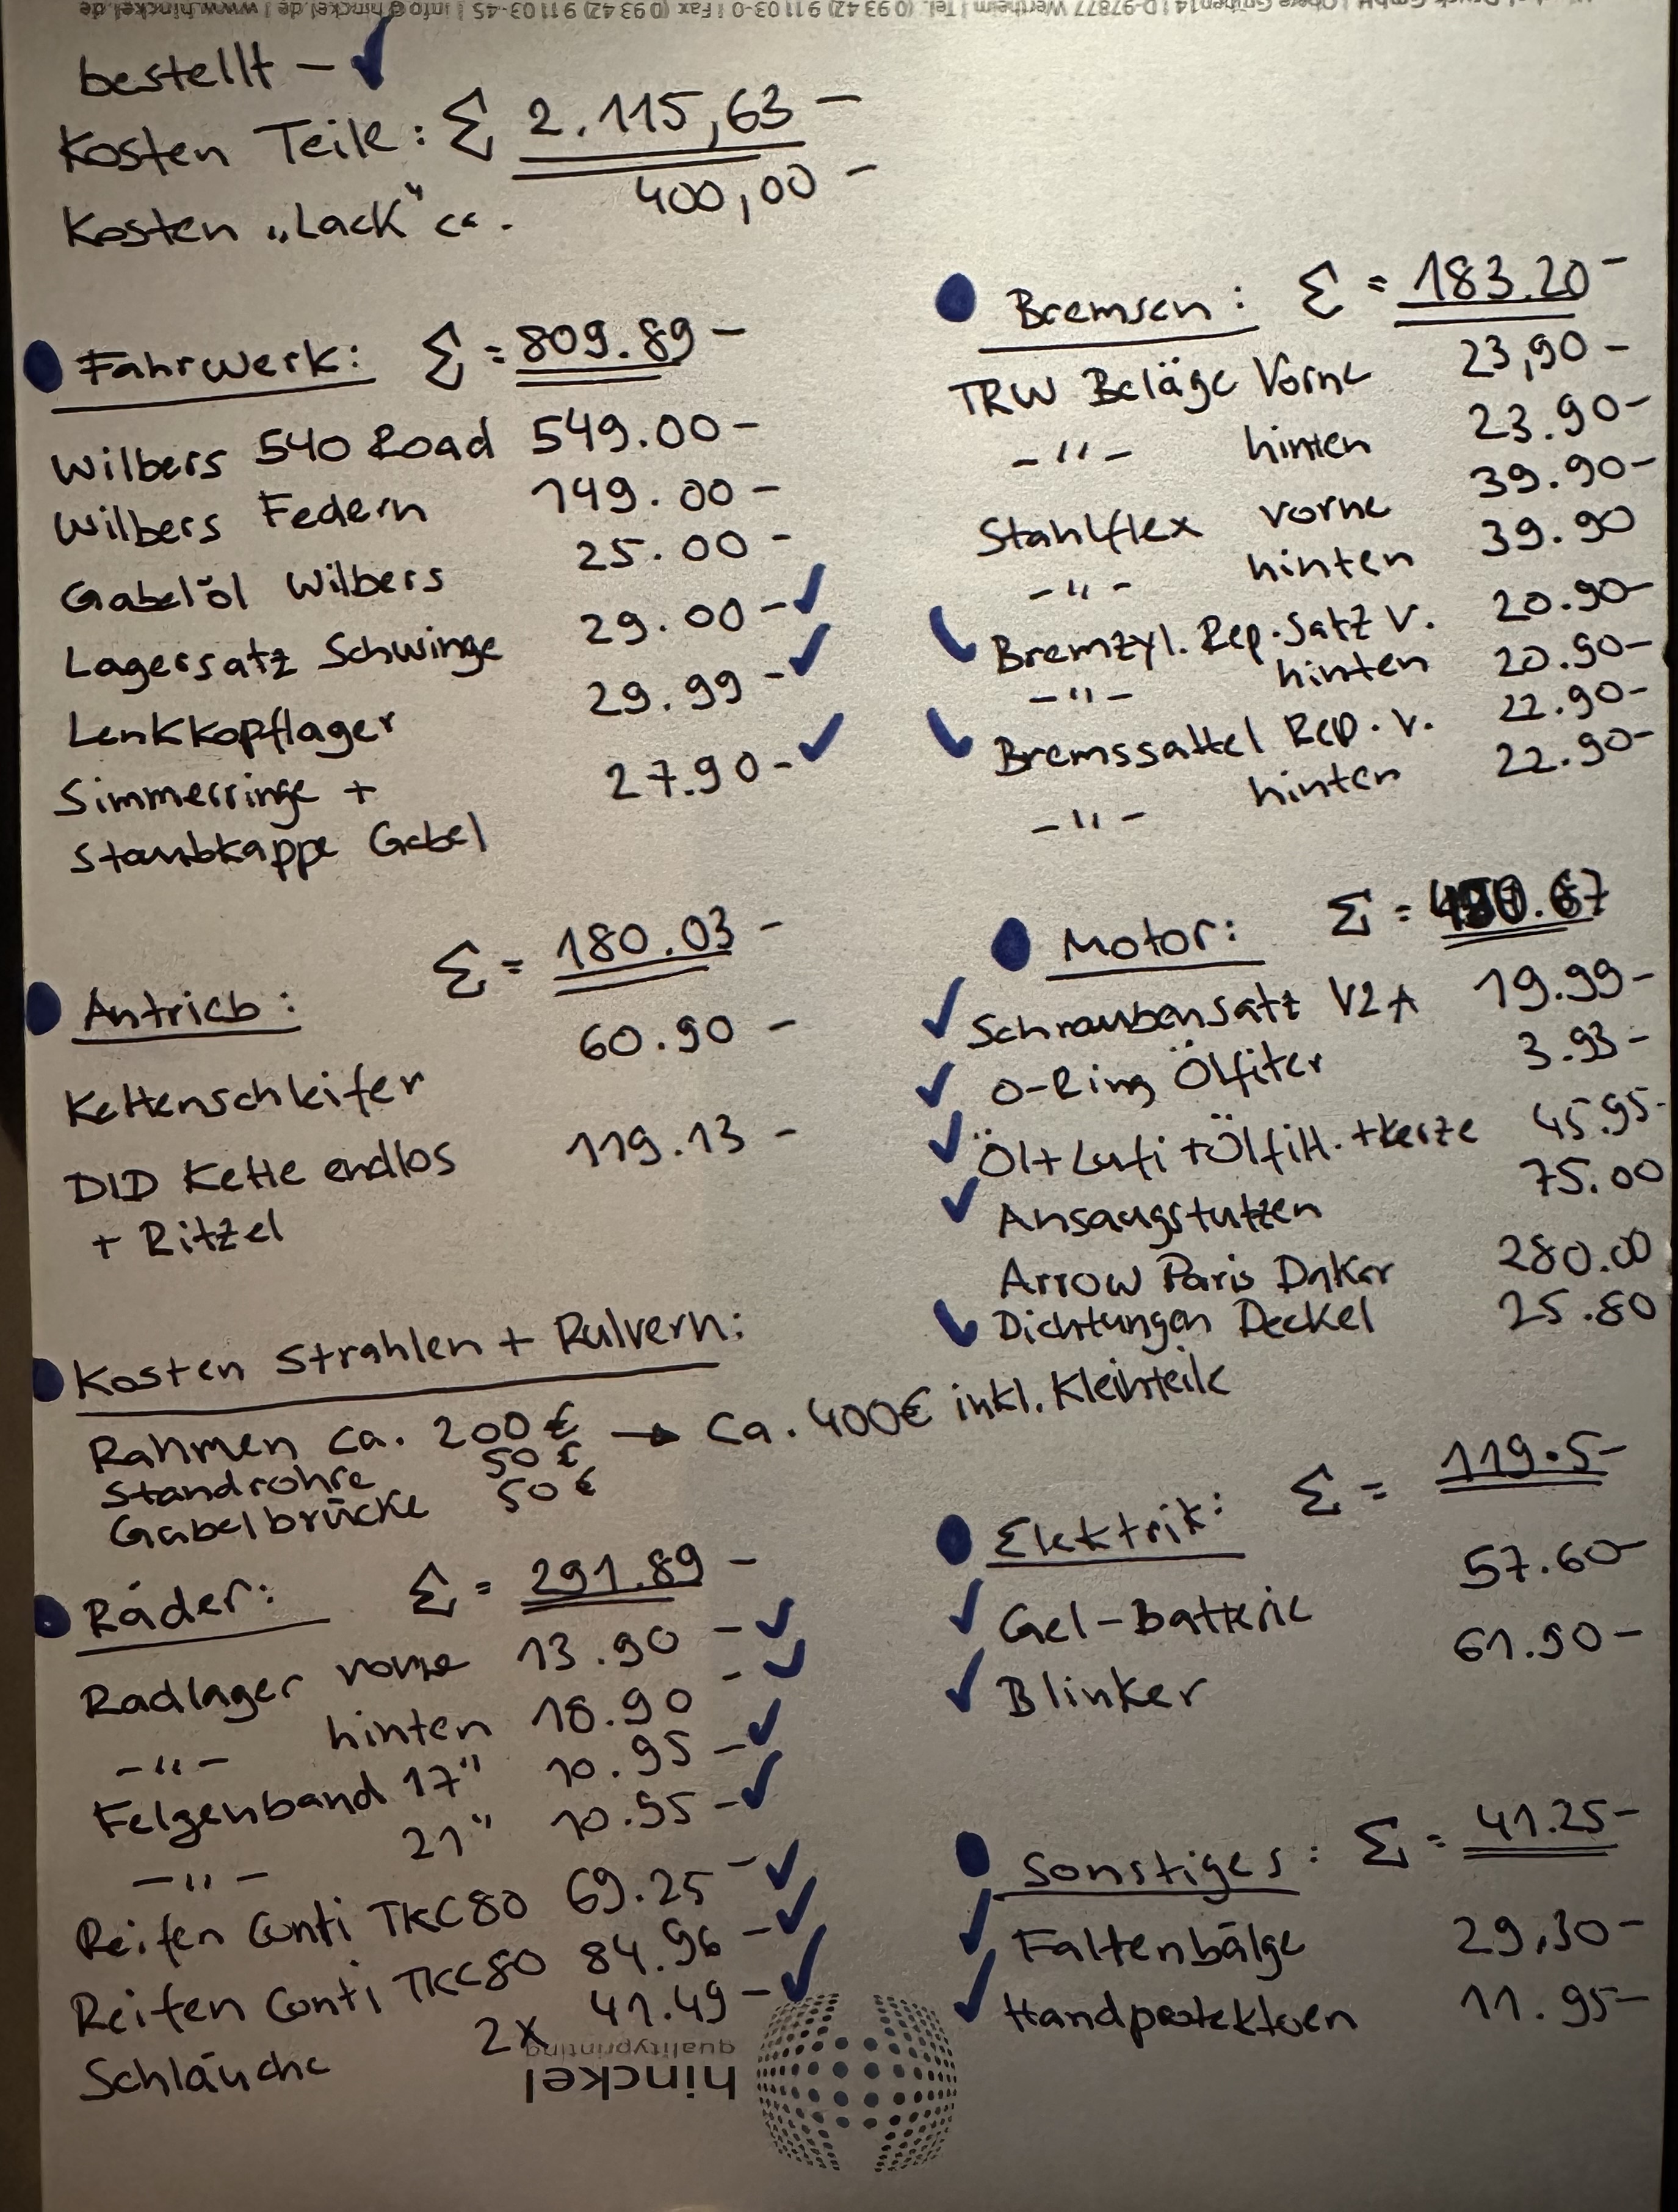 bestellt – ✓
Kosten Teile: Σ 2.115,63 –
Kosten „Lack" ca. 400,00 –
Fahrwerk: Σ = 809.89 –
Wilbers 540 Road 549.00 –
Wilbers Federn 149.00 –
Gabelöl Wilbers 25.00 –
Lagersatz Schwinge 29.00 – ✓
Lenkkopflager 29.99 – ✓
Simmerringe + 27.90 – ✓
Staubkappe Gabel
Antrieb: Σ = 180.03 –
Kettenschleifer 60.90 –
DID Kette endlos 119.13 –
+ Ritzel
Kosten Strahlen + Pulvern:
Rahmen ca. 200 € → ca. 400€ inkl. Kleinteile
Standrohre 50 €
Gabelbrücke 50 €
Räder: Σ = 291.89 –
Radlager vorne 13.90 – ✓
–"– hinten 18.90 – ✓
Felgenband 17" 10.95 – ✓
–"– 21" 10.95 – ✓
Reifen Conti TKC80 69.25 – ✓
Reifen Conti TKC80 84.96 – ✓
Schläuche 2x 41.49 – ✓
Bremsen: Σ = 183.20 –
TRW Beläge Vorne 23,90 –
–"– hinten 23.90 –
Stahlflex vorne 39.90 –
–"– hinten 39.90
✓ Bremzyl. Rep.Satz v. 20.90 –
–"– hinten 20.90 –
✓ Bremssattel Rep. v. 22.90 –
–"– hinten 22.90 –
Motor: Σ =
✓ Schraubensatz V2A 19.99 –
✓ O-Ring Ölfiter 3.93 –
✓ Öl+Lufi+Ölfilt.+Kerze 45.95 –
✓ Ansaugstutzen 75.00
Arrow Paris Dakar 280.00
✓ Dichtungen Deckel 25.80
Elektrik: Σ = 119.5 –
✓ Gel-Batterie 57.60 –
✓ Blinker 61.90 –
Sonstiges: Σ = 41.25 –
✓ Faltenbälge 29,30 –
✓ Handprotektoren 11.95 –
hinckel
qualityprinting
D-97877 Wertheim | Tel. (0 93 42) 9 11 03-0 | Fax (0 93 42) 9 11 03-45 | info@hinckel.de | www.hinckel.de